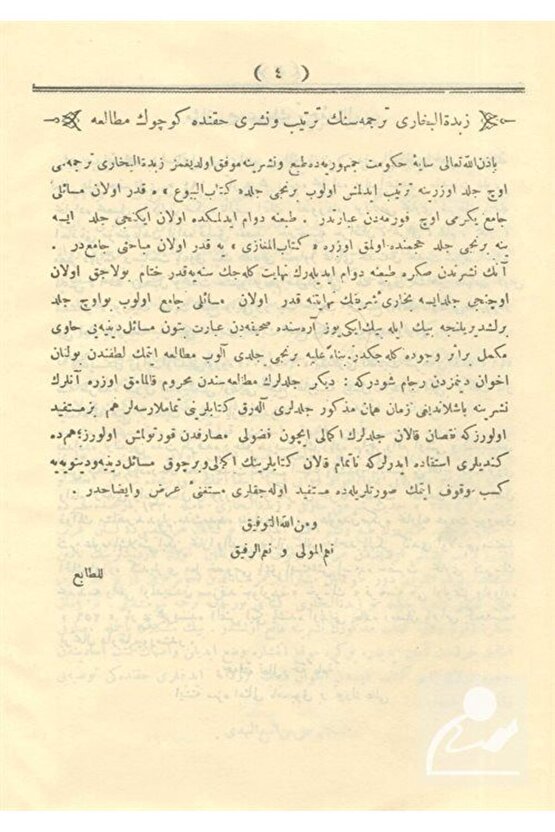 ( ٤ )
زبدة البخاری ترجمه سنك ترتيب ونشری حقنده كوچوك مطالعه
باذن الله تعالی سایهٔ حکومت جمهوریه ده طبع ونشرینه موفق اولدیغمز زبدة البخاری ترجمه سی
اوچ جلد اوزرینه ترتیب ایدلمش اولوب برنجی جلده «کتاب البیوع» ه قدر اولان مسائلی
جامع یکرمی اوچ فورمه دن عبارتدر . طبعنه دوام ایدلمکده اولان ایکنجی جلد ایسه
ینه برنجی جلد حجمنده اولمق اوزره «کتاب المغازی» یه قدر اولان مباحثی جامعدر .
آنك نشرندن صکره طبعنه دوام ایدیله رك نهایت کله جك سنه یه قدر ختام بولاجق اولان
اوچنجی جلد ایسه بخاریٔ شریفك نهایتنه قدر اولان مسائلی جامع اولوب بو اوچ جلد
برلشدیریلنجه بیك ایله بیك ایکی یوز آره سنده صحیفه دن عبارت بتون مسائل دینیه یی حاوی
مکمل بر اثر وجوده کله جکدر. بناءً علیه برنجی جلدی آلوب مطالعه ایتمك لطفندن بولنان
اخوان دینمزدن رجام شودرکه : دیکر جلدلرك مطالعه سندن محروم قالمامق اوزره آنلرك
نشرینه باشلاندیغی زمان همان مذکور جلدلری آله رق کتابلرینی تماملارسه لر هم بز مستفید
اولورزکه نقصان قالان جلدلرك اکمالی ایچون فضولی مصارفدن قورتولمش اولورز؛ هم ده
کندیلری استفاده ایدرلرکه ناتمام قالان کتابلرینك اکمالی وبرچوق مسائل دینیه ودنیویه یه
کسب وقوف ایتمك صورتلریله ده مستفید اوله جقلری مستغنیٔ عرض وایضاحدر .
ومن الله التوفیق
نعم المولی و نعم الرفیق
للطابع